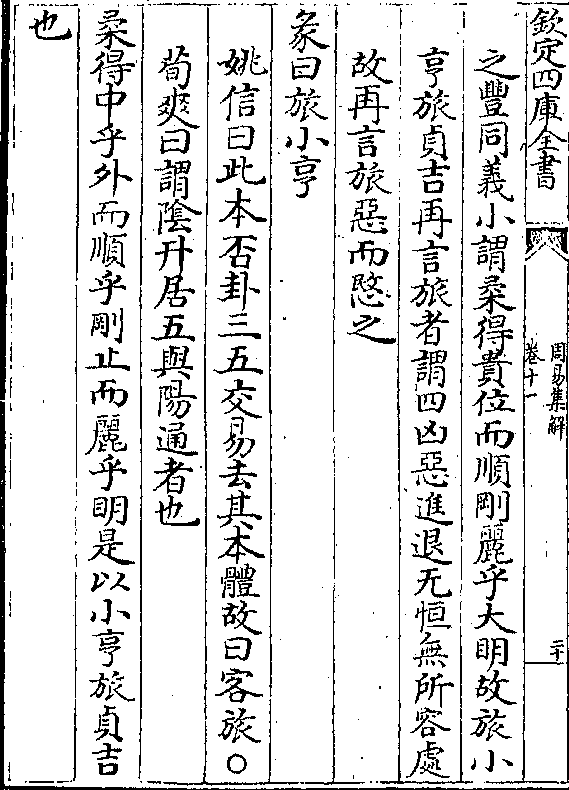 欽定四庫全書
周易集解
卷十一
二十
之豐同義小謂柔得貴位而順剛麗乎大明故旅小
亨旅貞吉再言旅者謂四凶惡進退无恒無所容處
故再言旅惡而愍之
彖曰旅小亨
姚信曰此本否卦三五交易去其本體故曰客旅○
荀爽曰謂陰升居五與陽通者也
柔得中乎外而順乎剛止而麗乎明是以小亨旅貞吉
也